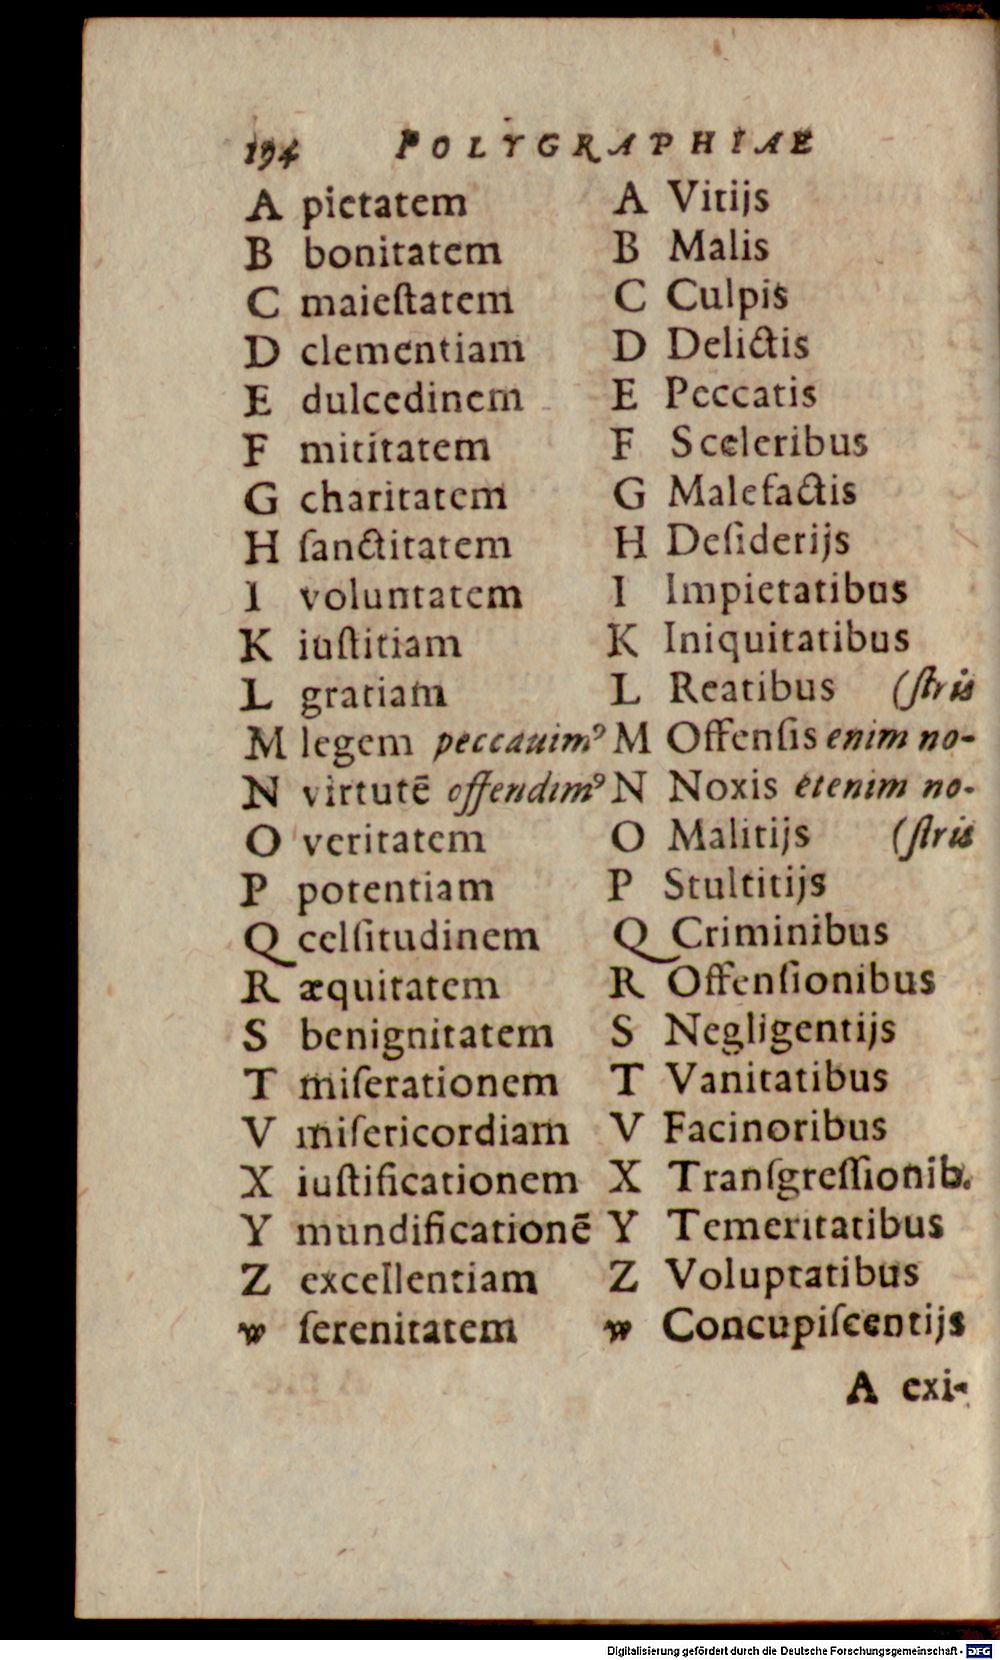 194 POLYGRAPHIAE
A pietatem
B bonitatem
C maieſtatem
D clementiam
E dulcedinem
F mititatem
G charitatem
H ſanctitatem
I voluntatem
K iuſtitiam
L gratiam
M legem peccauimꝰ
N virtutē offendimꝰ
O veritatem
P potentiam
Q celſitudinem
R æquitatem
S benignitatem
T miſerationem
V miſericordiam
X iuſtificationem
Y mundificationē
Z excellentiam
w ſerenitatem
A Vitijs
B Malis
C Culpis
D Delictis
E Peccatis
F Sceleribus
G Malefactis
H Deſiderijs
I Impietatibus
K Iniquitatibus
L Reatibus (ſtris
M Offenſis enim no-
N Noxis etenim no-
O Malitijs (ſtris
P Stultitijs
Q Criminibus
R Offenſionibus
S Negligentijs
T Vanitatibus
V Facinoribus
X Tranſgreſſionib.
Y Temeritatibus
Z Voluptatibus
w Concupiſcentijs
A exi-
Digitalisierung gefördert durch die Deutsche Forschungsgemeinschaft - DFG